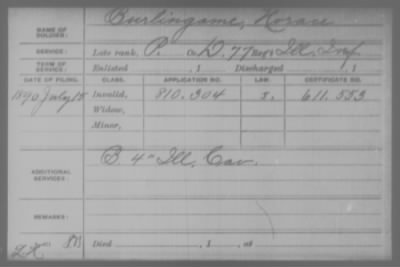 NAME OF SOLDIER: Burlingame, Horace
SERVICE: Late rank, P. Co. D, 77 Reg't Ill. Inf
TERM OF SERVICE: Enlisted , 1 Discharged , 1
DATE OF FILING. CLASS. APPLICATION NO. LAW. CERTIFICATE NO.
1890 July 15 Invalid, 810.304 J. 611.553
Widow,
Minor,
ADDITIONAL SERVICES: B. 4" Ill. Cav.
REMARKS:
Died , 1 , at